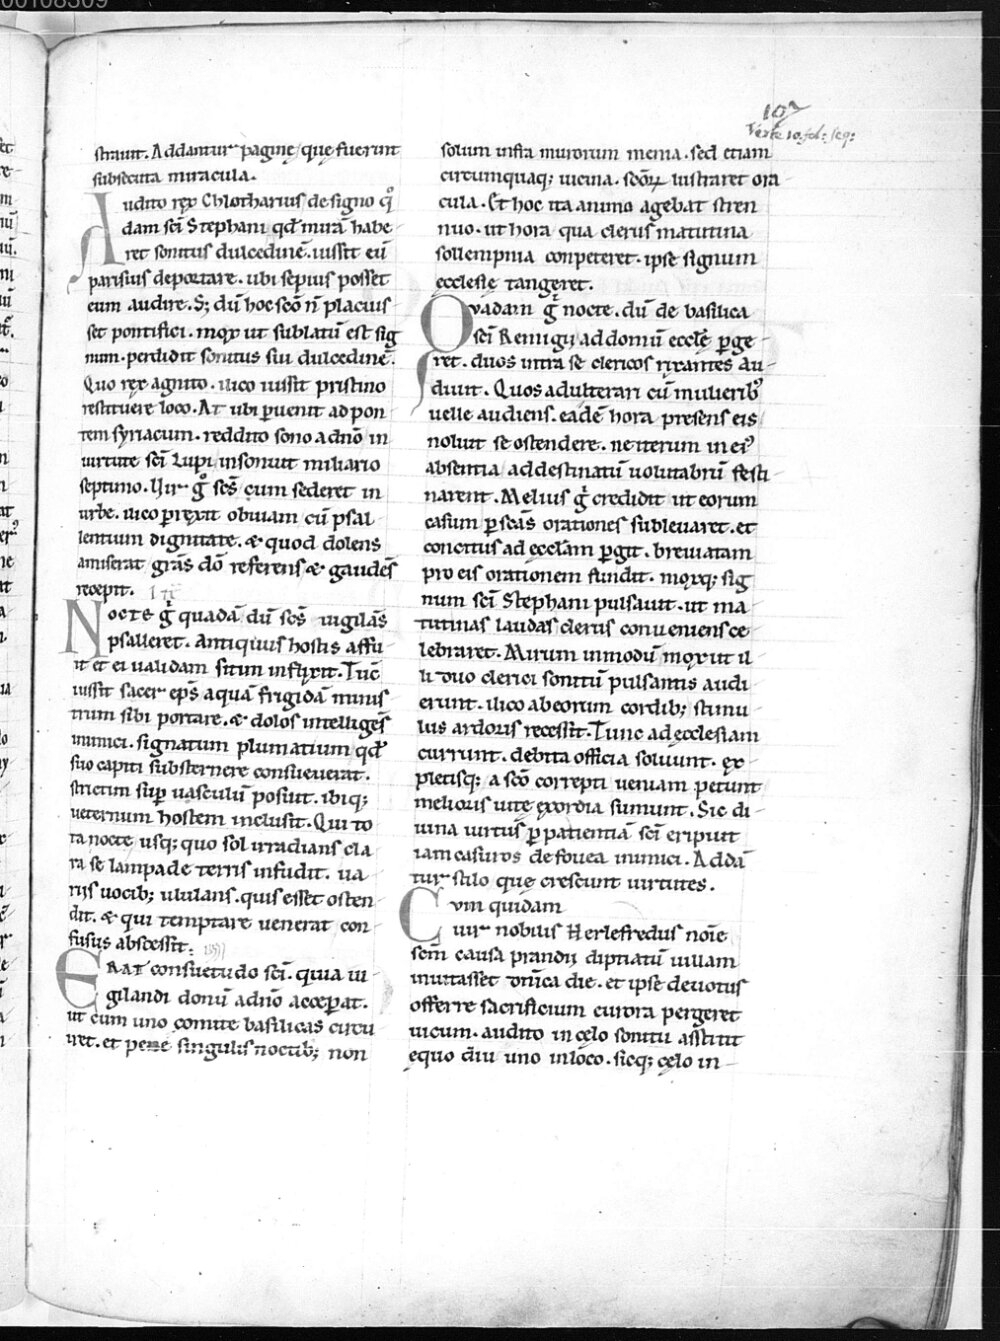 00108309
107
Verte 10. fol: seq:
strauit. Addantur pagine que fuerunt
subsecuta miracula.
Audito rex Chlotharius de signo qͦ
dam sci Stephani qd mirā habe
ret sonitus dulcedinē. iussit eū
parisius deportare. ubi sepius posset
eum audire. S; dū hoc scō n̄ placuis
set pontifici. mox ut sublatū est sig
num. perdidit sonitus sui dulcedinē.
Quo rex agnito. ilico iussit pristino
restituere loco. At ubi puenit ad pon
tem syriacum. reddito sono a dn̄o in
uirtute sci Lupi insonuit miliario
septimo. Uir gͦ scs cum sederet in
urbe. ilico prexit obuiam cū psal
lentium dignitate. & quod dolens
amiserat grās dō referens & gaudēs
recepit.
Nocte g quadā dū scs uigilās
psalleret. antiquus hostis affu
it et ei ualidam sitim inflixit. Tūc
iussit sacer eps aquā frigidā minis
trum sibi portare. & dolos intelligēs
inimici. signatum plumatium qd
suo capiti substernere consueuerat.
strictim sup uasculū posuit. ibiq;
ueternum hostem inclusit. Qui to
ta nocte usq; quo sol irradians cla
ra se lampade terris infudit. ua
rijs uocib; ululans. quis esset osten
dit. & qui temptare uenerat con
fusus abscessit.
Erat consuetudo sci. quia ui
gilandi donū a dn̄o acceperat.
ut cum uno comite basilicas circu
iret. et pene singulis noctib; non
solum infra murorum menia. sed etiam
circumquaq; uicina. scōꝝ lustraret ora
cula. Et hoc ita animo agebat stren
nuo. ut hora qua clerus matutina
sollempnia conpeteret. ipse signum
ecclesie tangeret.
Quadam g nocte. dū de basilica
sci Remigij ad domū eccle pge
ret. duos intra se clericos rixantes au
diuit. Quos adulterari cū mulierib;
uelle audiens. eadē hora presens eis
noluit se ostendere. ne iterum in ei9
absentia ad destinatū uolutabrū festi
narent. Melius g credidit ut eorum
casum p scās orationes subleuaret. et
concitus ad ecclām pgit. breuiatam
pro eis orationem fundit. moxq; sig
num sci Stephani pulsauit. ut ma
tutinas laudas clerus conueniens ce
lebraret. Mirum inmodū mox ut il
li duo clerici sonitū pulsantis audi
erunt. ilico ab eorum cordib; stimu
lus ardoris recessit. Tunc ad ecclesiam
currunt. debita officia soluunt. ex
pletisq; a scō correpti ueniam petunt
melioris uite exordia sumunt. Sic di
uina uirtus p patientiā sci eripuit
iam casuros de fouea inimici. Addā
tur stilo que crescunt uirtutes.
Cum quidam
uir nobilis Herlefredus noīe
scm causa prandij diptiatū uillam
inuitasset dnīca die. et ipse deuotus
offerre sacrificium curora pergeret
uicum. audito in celo sonitu astitit
equo diu uno in loco. sicq; celo in